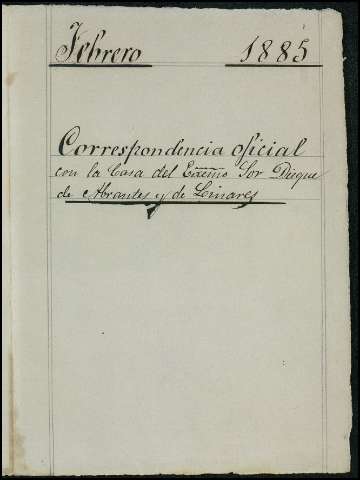 Febrero 1885
Correspondencia oficial
con la Casa del Exc̃mo Sor Duque
de Abrantes y de Linares